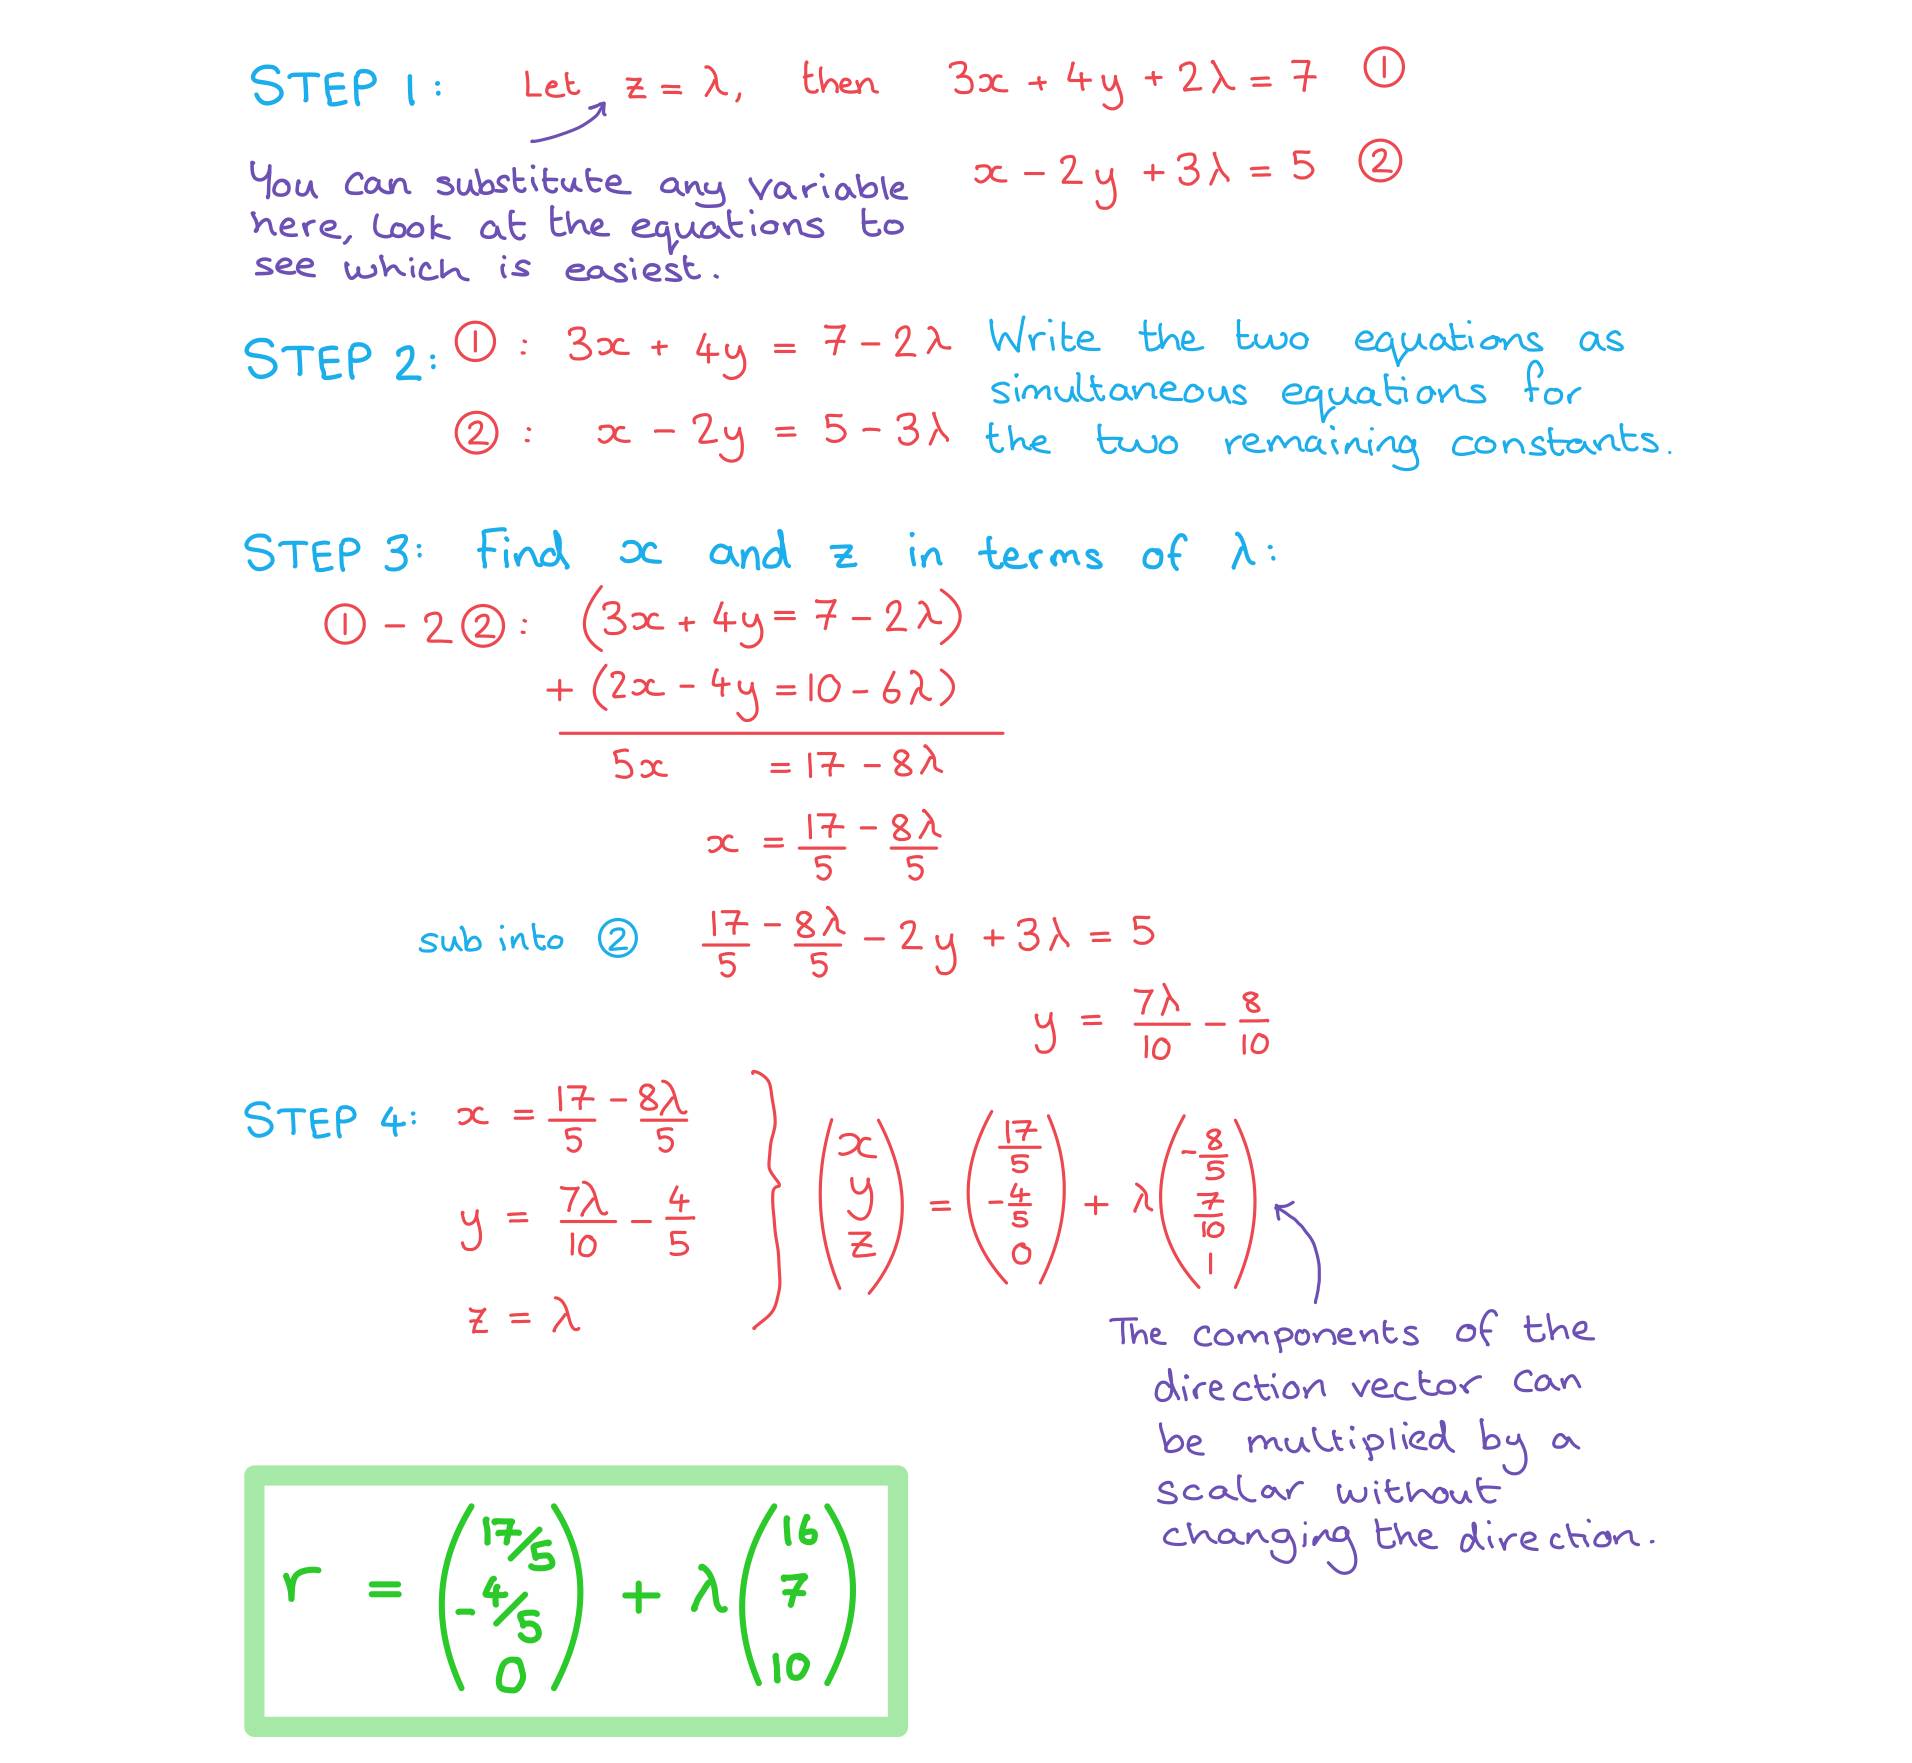 STEP 1: Let z = λ, then 3x + 4y + 2λ = 7 ①
x - 2y + 3λ = 5 ②
You can substitute any variable
here, look at the equations to
see which is easiest.
STEP 2: ① : 3x + 4y = 7 - 2λ
② : x - 2y = 5 - 3λ
Write the two equations as
simultaneous equations for
the two remaining constants.
STEP 3: Find x and z in terms of λ:
① - 2②: (3x + 4y = 7 - 2λ)
+ (2x - 4y = 10 - 6λ)
5x = 17 - 8λ
x = 17/5 - 8λ/5
sub into ② 17/5 - 8λ/5 - 2y + 3λ = 5
y = 7λ/10 - 8/10
STEP 4: x = 17/5 - 8λ/5
y = 7λ/10 - 4/5
z = λ
(x y z) = (17/5 -4/5 0) + λ(-8/5 7/10 1)
The components of the
direction vector can
be multiplied by a
scalar without
changing the direction.
r = (17/5 -4/5 0) + λ(16 7 10)